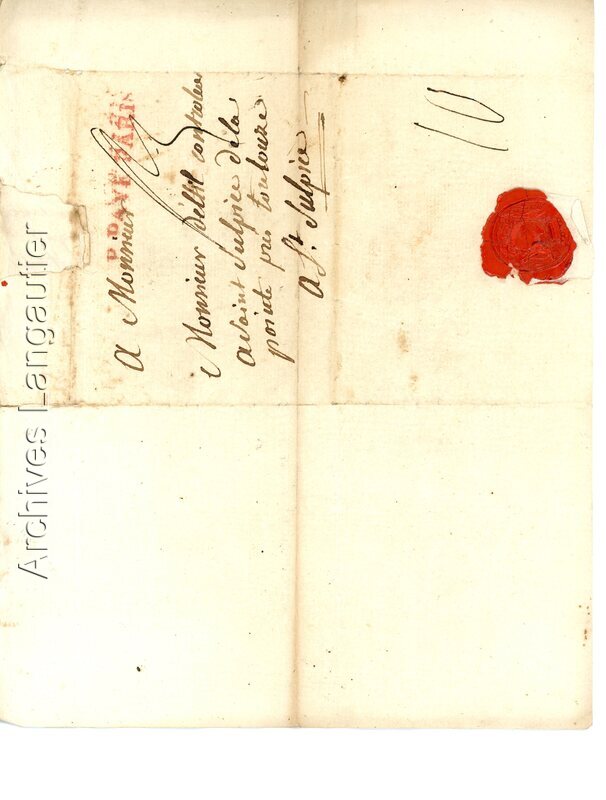 P.PAYÉ PARIS
A Monsieur
Monsieur controleur
a Saint Sulpice de la
pointe pres toulouze
A St. Sulpice
10
Archives Langautier